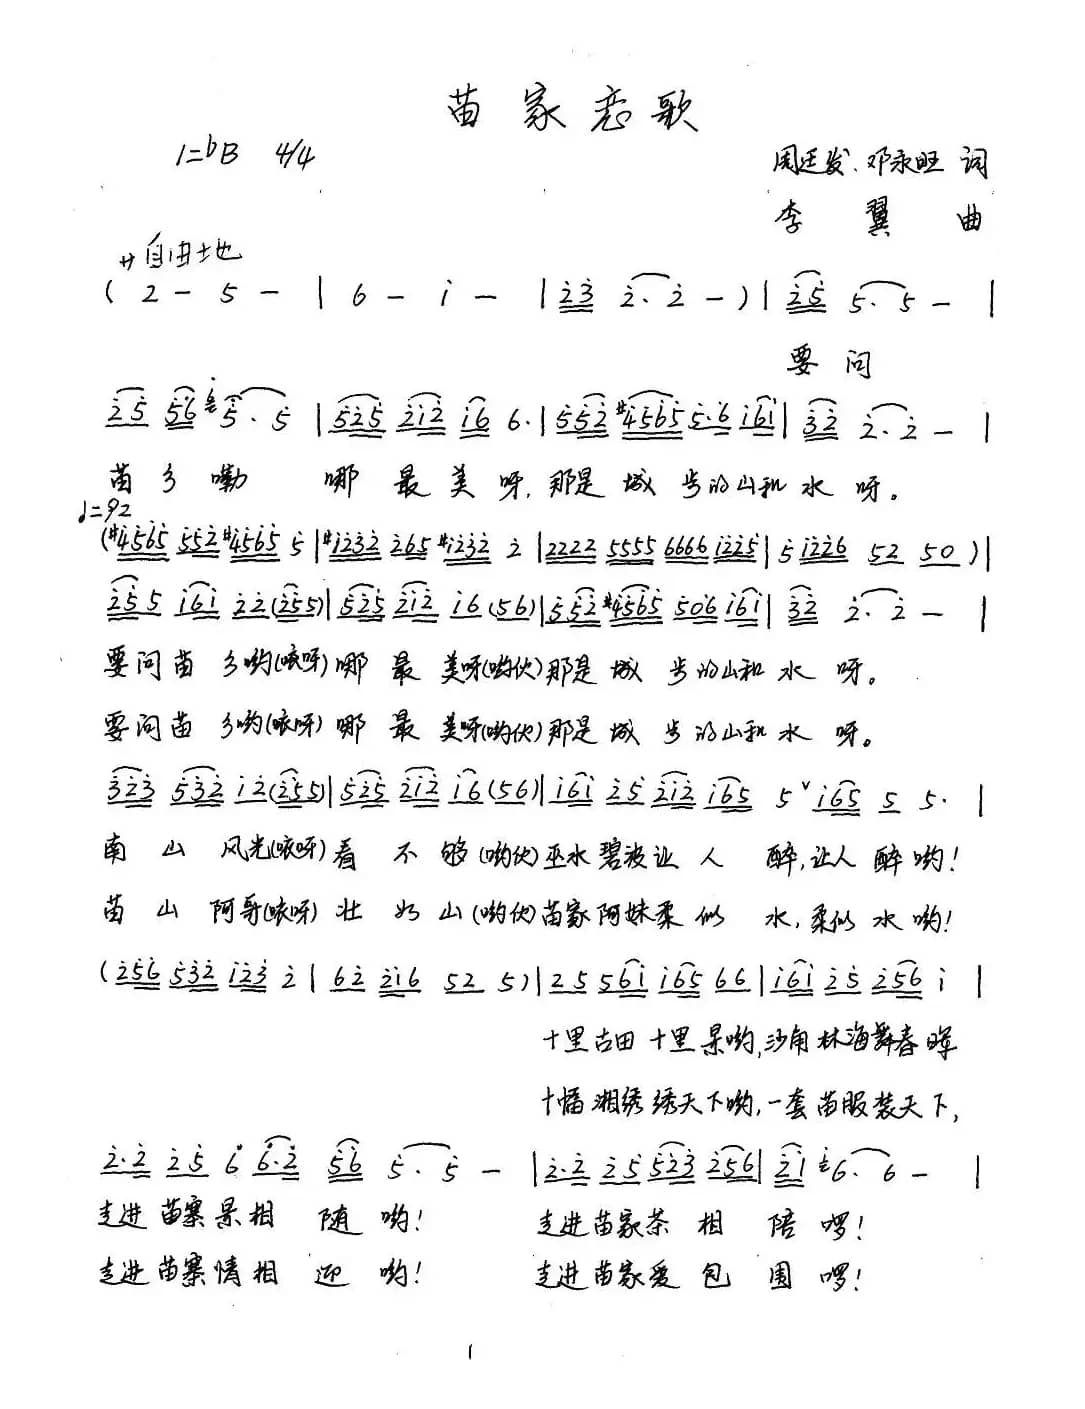 苗家恋歌
1=bB 4/4
周廷发、邓永旺 词
李翼 曲
サ自由地
( 2 - 5 - | 6 - i - | 23 2·2 - ) | 25 5·5 - |
要问
25 56 5·5 | 525 212 i6 6· | 552 #4565 5·6 i6i | 32 2·2 - |
苗乡嘞 哪最美呀,那是城步的山和水呀。
♩=92
(#4565 552 #4565 5 | #1232 265 #1232 2 | 2222 5555 6666 1225 | 5 1226 52 50 ) |
255 i6i 22(255) | 525 212 i6(56) | 552 #4565 506 i6i | 32 2·2 - |
要问苗乡哟(咳呀)哪最美呀(哟伙)那是城步的山和水呀。
要问苗乡哟(咳呀)哪最美呀(哟伙)那是城步的山和水呀。
323 532 i2(255) | 525 212 i6(56) | i6i 25 212 i65 5 ∨ i65 5 5· |
南山风光(咳呀)看不够(哟伙)巫水碧波让人醉,让人醉哟!
苗山阿哥(咳呀)壮如山(哟伙)苗家阿妹柔似水,柔似水哟!
(256 532 123 2 | 62 216 52 5) | 25 56i i65 66 | i6i 25 256 i |
十里古田十里景哟,沙角林海舞春晖
十幅湘绣绣天下哟,一套苗服装天下,
2·2 25 6 6·2 56 5·5 - | 2·2 25 523 256 | 21 6·6 - |
走进苗寨景相随哟! 走进苗家茶相陪啰!
走进苗寨情相迎哟! 走进苗家爱包围啰!
1